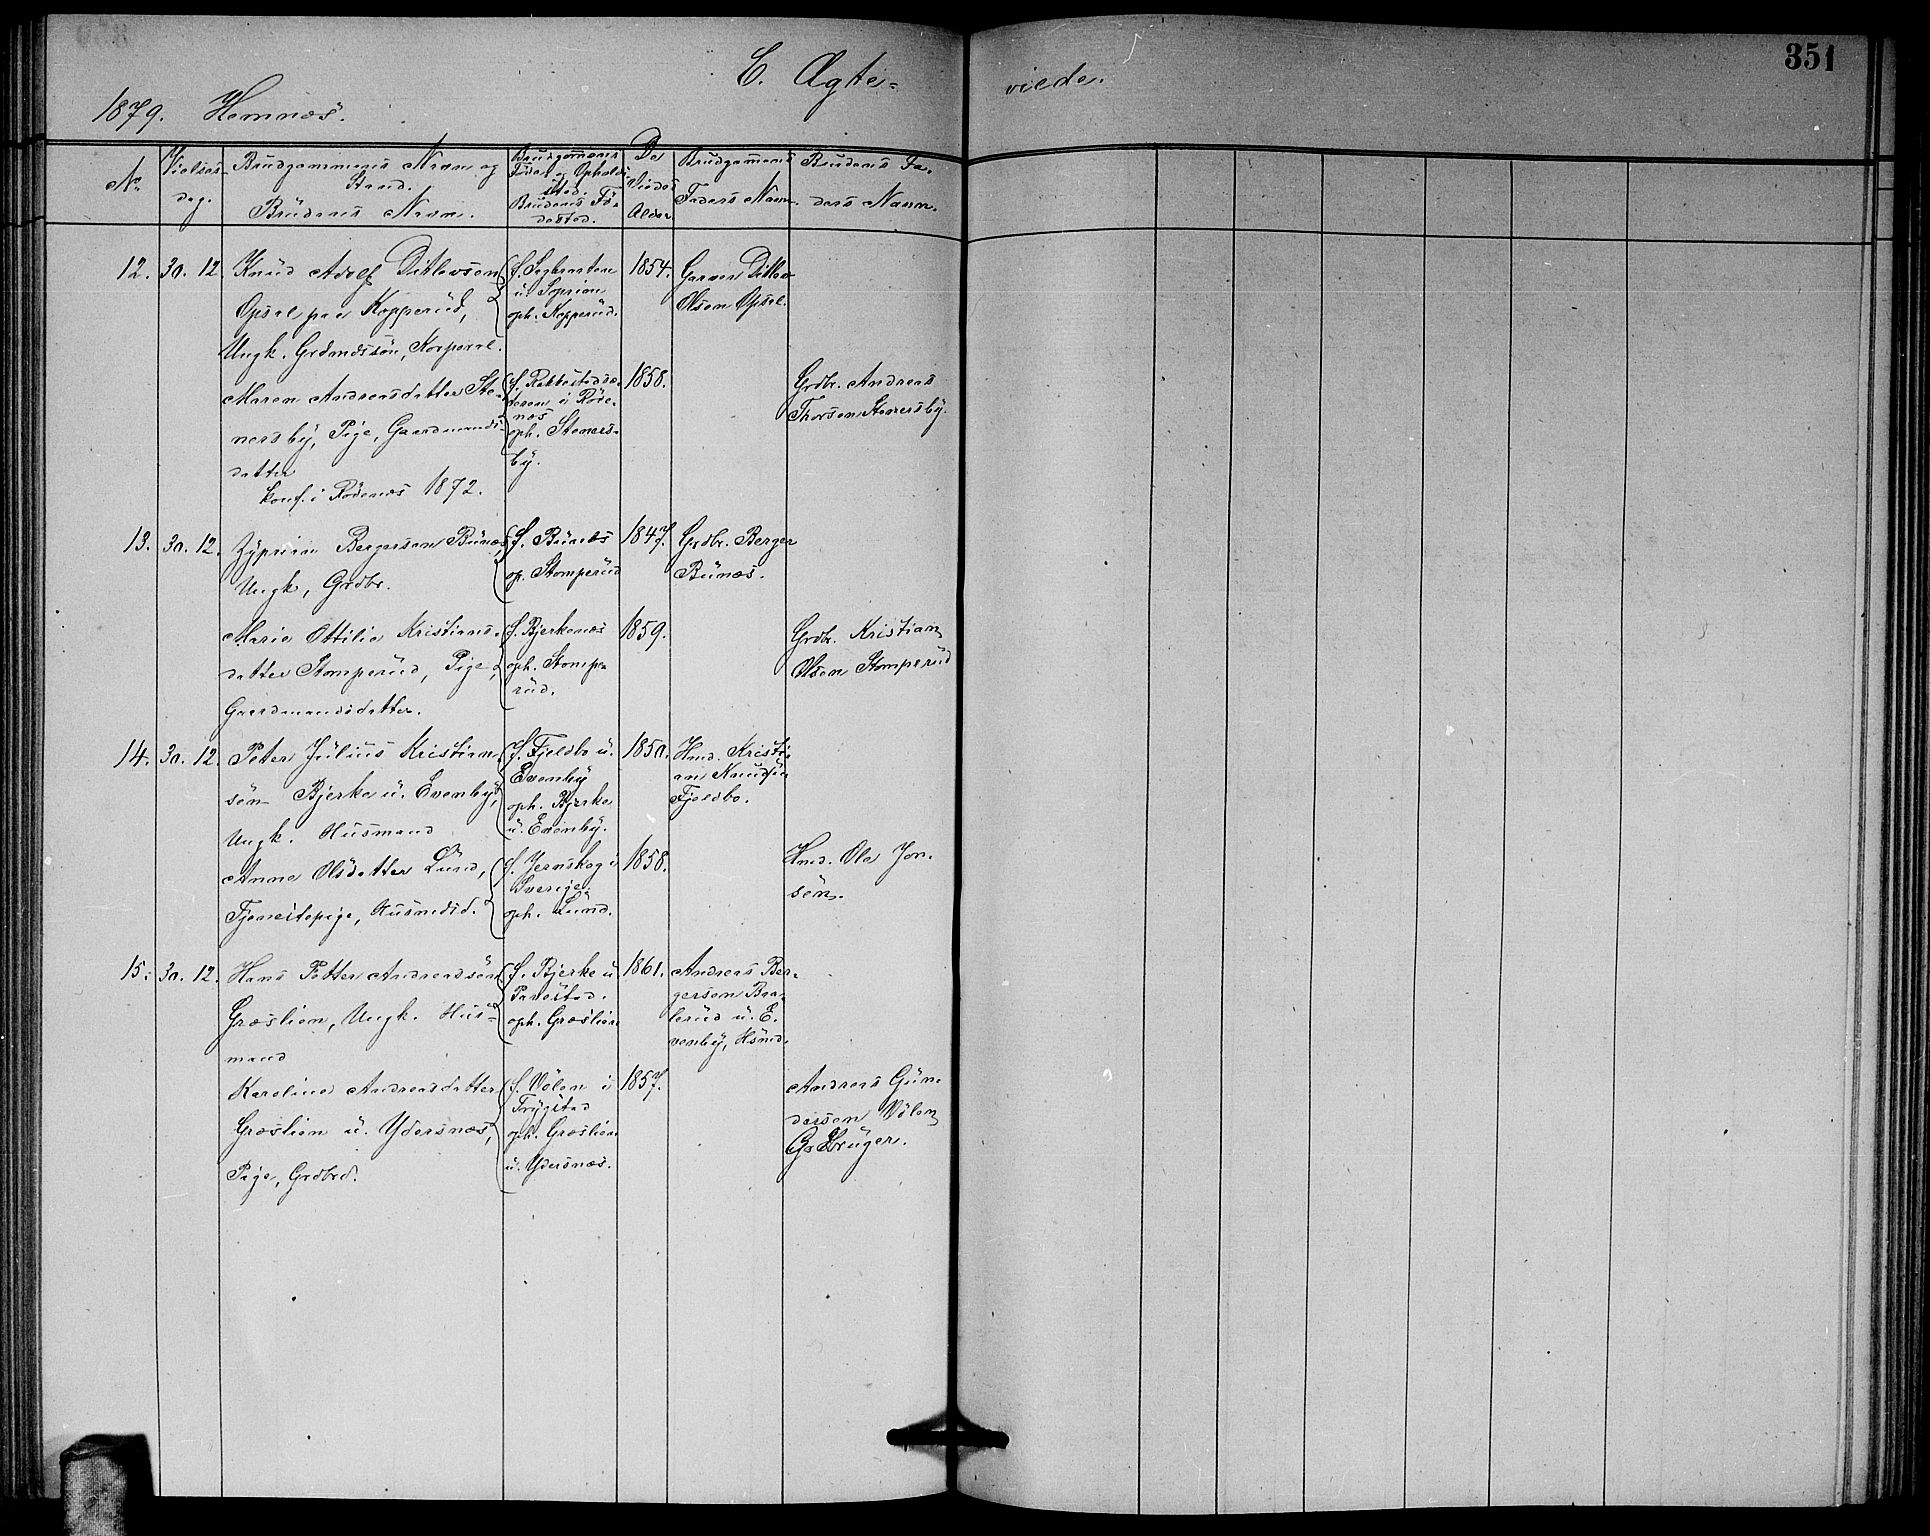 351
C. Ægte=
viede.
1879. Hemnæs.
No.
Vielses-
dag.
Brudgommens Navn og
Stand.
Brudens Navn.
Brudgommens
Føde- og Opholds-
sted.
Brudens Fø-
dested.
De
Viedes
Alder
Brudgomens
Faders Navn.
Brudens Fa-
ders Navn.
12. 30. 12
Knud Adolf Ditlevsen
Opsal paa Kopperud,
Ungk. Grdmandssøn, Korporal.
opk. Kopperud.
1854.
Garver Ditlev
Olsen Opsal.
Maren Andreasdatter Ste-
nersby, Pige, Gaardmands-
datter
konf. i Rødenæs 1872.
i Røde-
næs
oph. Steners-
by.
1858.
Grdbr. Andreas
Thorsen Stenersby.
13. 30. 12.
Zyprian Bergersen Bunæs,
Ungk, Grdbr.
f. Bunæs
op. Stomperud
1847.
Grdbr. Berger
Bunæs.
Marie Ottilie Kristians-
datter Stomperud, Pige,
Gaardmandsdatter.
f. Bjerkenæs
oph. Stompe-
rud.
1859.
Grdbr. Kristian
Olsen Stomperud
14. 30. 12.
Peter Julius Kristian
sen Bjerke u. Evenby,
Ungk. Husmand
f. Fjeldbo u.
Evenby
oph. Bjerke
u. Evenby.
1850.
Hmd. Kristi
an Knudsen
Fjeldbo.
Anne Olsdatter Lund,
Tjenestepige, Husmdsd.
f. Jernskog i
Sverige.
oph. Lund.
1858.
Hmd. Ole Jon-
sen.
15. 30. 12.
Hans Petter Andreassen
Græslien, Ungk. Hus-
mand
f. Bjerke u
oph. Græslien
1861.
Andreas Ber-
gersen Baa-
lerud u. E-
venby, Hsmd.
Karoline Andreasdatter
Græslien u. Ydersnæs,
Pige, Grdbrd.
f. Vølen i
Trygstad
oph. Græslien
u. Ydersnæs.
1857.
Andreas Gun-
dersen Vølen
Gdbruger.